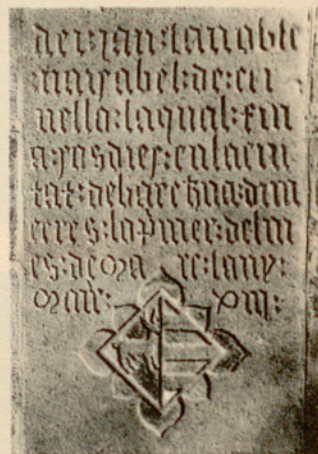 jau:lanoble
:naysabel:de:cer
uello:laqual:fin
a:sosdies:enlaciu
tat:debarchna:dim
ecres:lopmer:delm
es:de:ma rc:lany:
xiii: